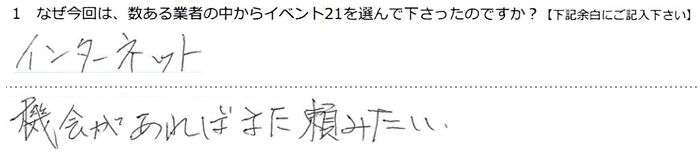 1 なぜ今回は、数ある業者の中からイベント21を選んで下さったのですか？【下記余白にご記入下さい】
インターネット
機会があればまた頼みたい.